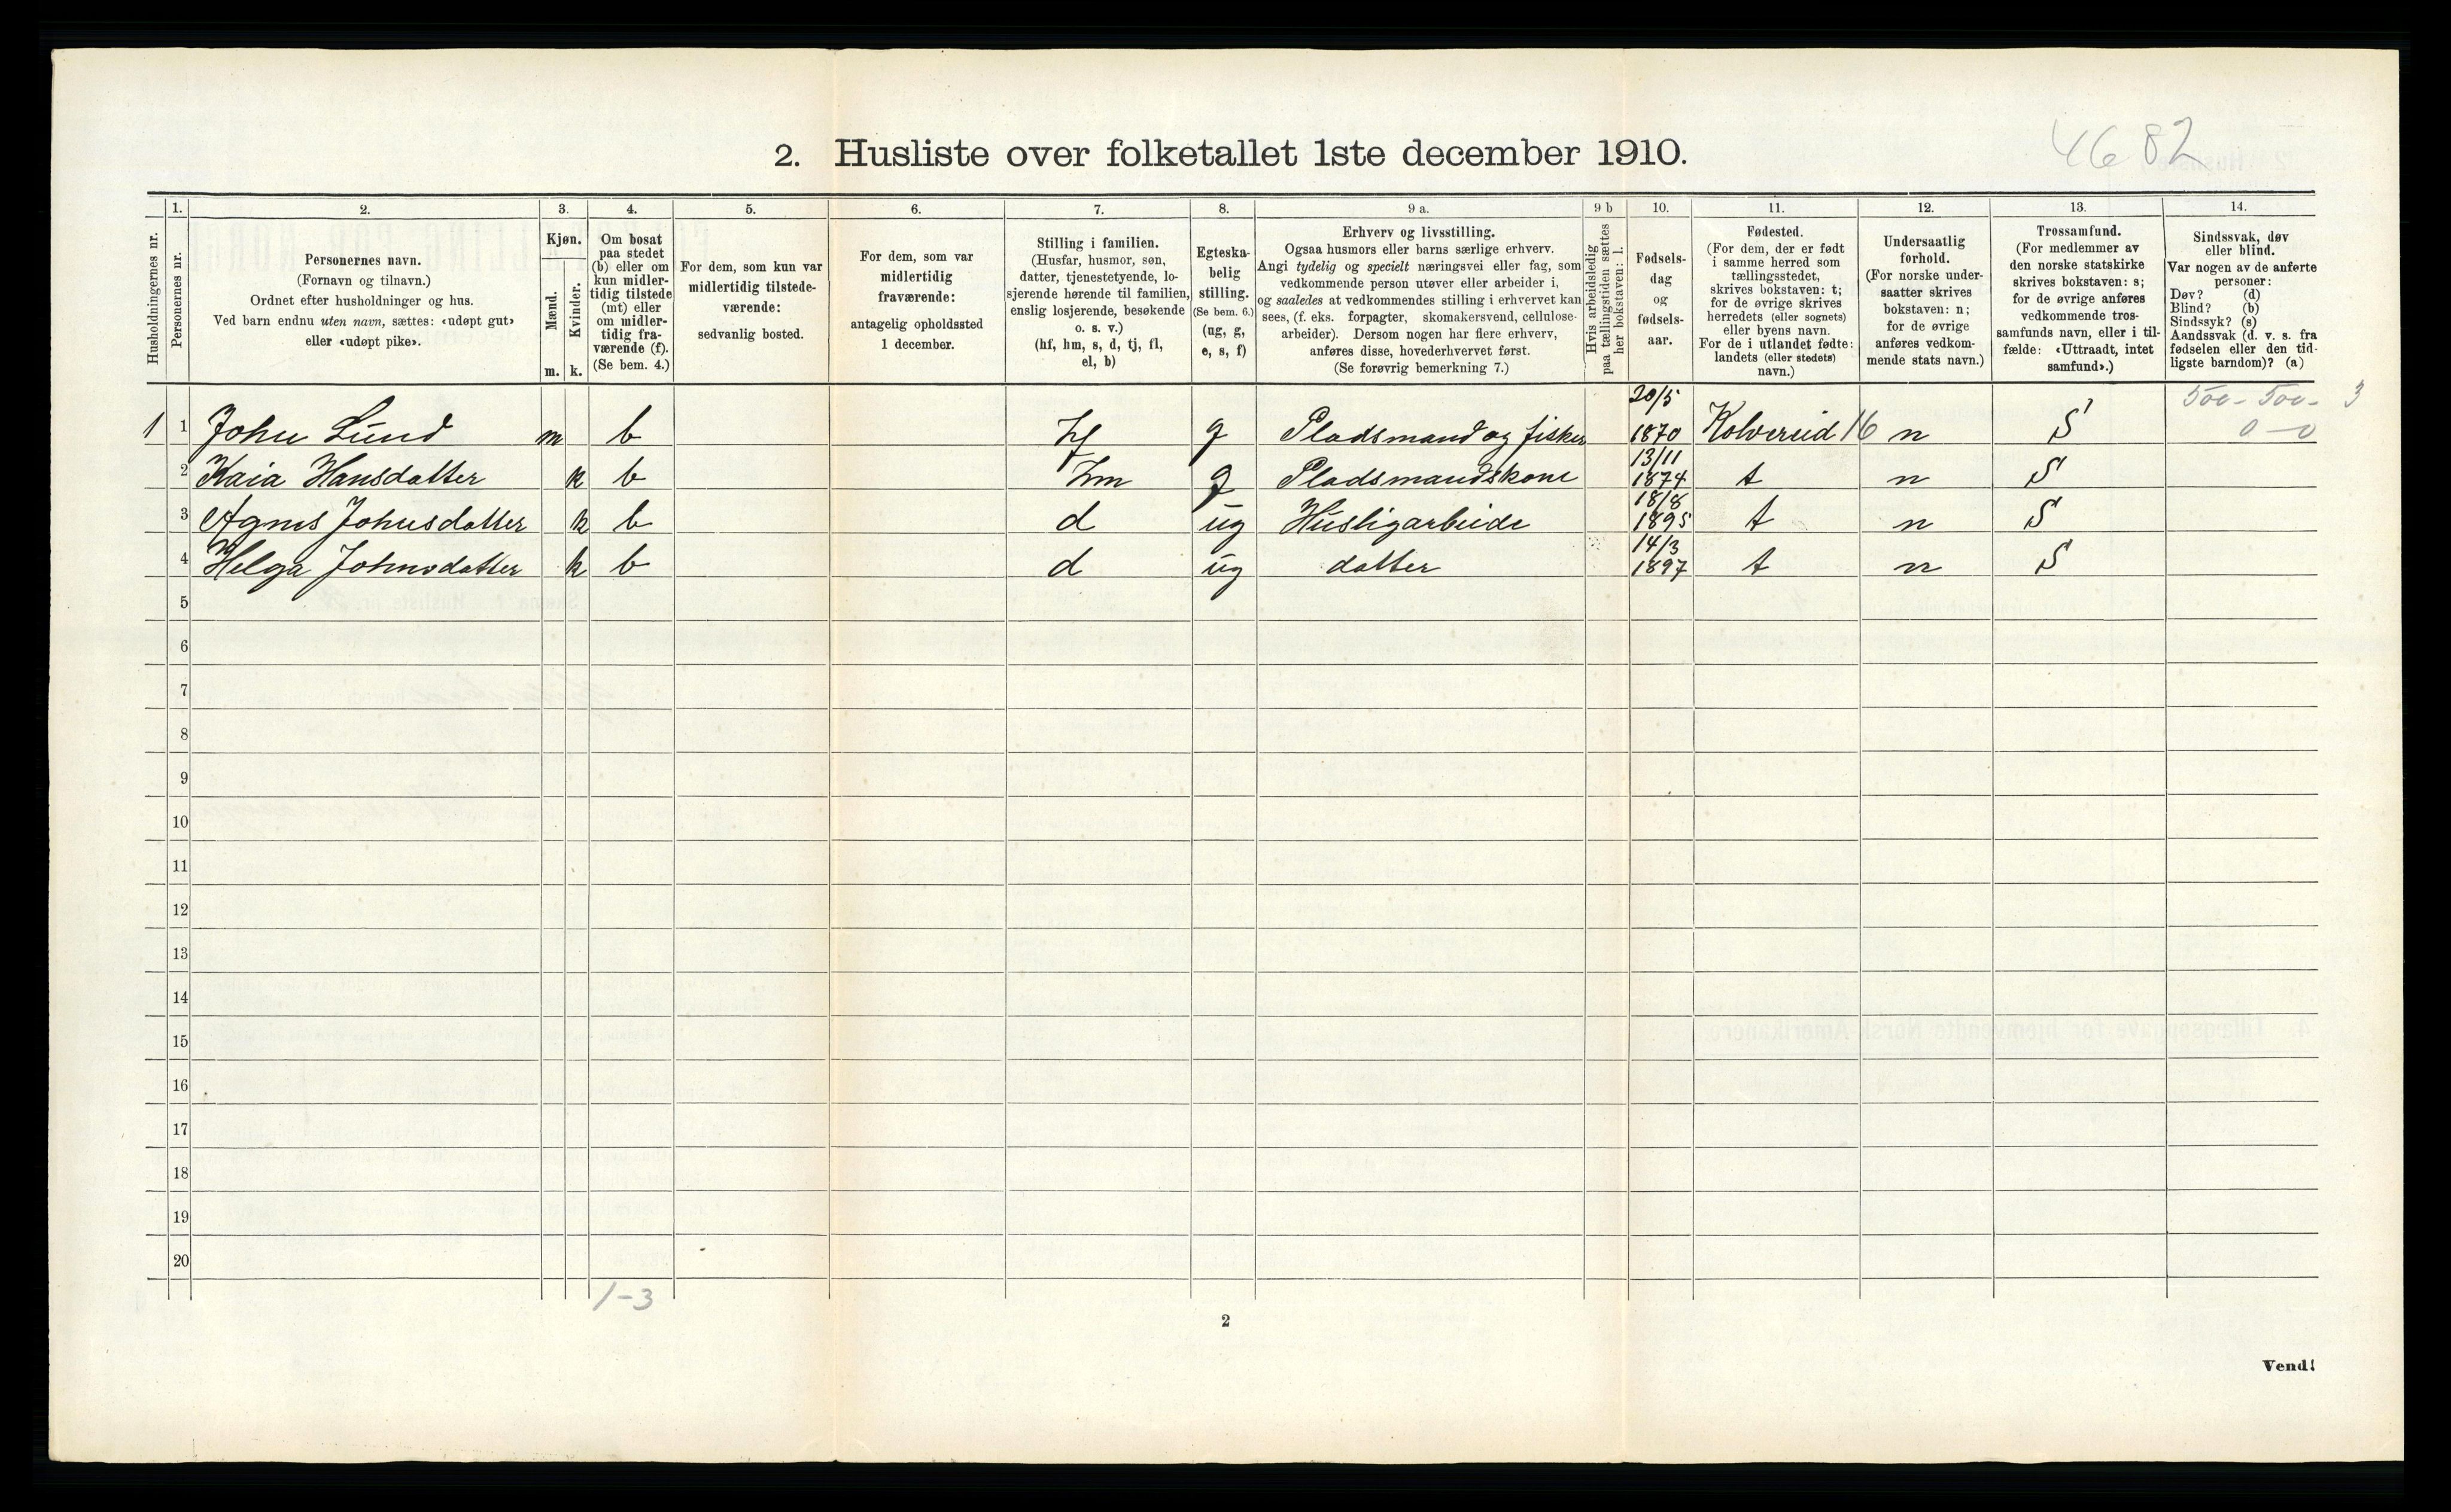 4682
2. Husliste over folketallet 1ste december 1910.
Husholdningernes nr.
1.
Personernes nr.
2.
Personernes navn.
(Fornavn og tilnavn.)
Ordnet efter husholdninger og hus.
Ved barn endnu uten navn, sættes: «udøpt gut»
eller «udøpt pike».
3.
Kjøn.
Mænd.
Kvinder.
m. k.
4.
Om bosat
paa stedet
(b) eller om
kun midler-
tidig tilstede
(mt) eller
om midler-
tidig fra-
værende (f).
(Se bem. 4.)
5.
For dem, som kun var
midlertidig tilstede-
værende:
sedvanlig bosted.
6.
For dem, som var
midlertidig
fraværende:
antagelig opholdssted
1 december.
7.
Stilling i familien.
(Husfar, husmor, søn,
datter, tjenestetyende, lo-
sjerende hørende til familien,
enslig losjerende, besøkende
o. s. v.)
(hf, hm, s, d, tj, fl,
el, b)
8.
Egteska-
belig
stilling.
(Se bem. 6.)
(ug, g,
e, s, f)
9 a.
Erhverv og livsstilling.
Ogsaa husmors eller barns særlige erhverv.
Angi tydelig og specielt næringsvei eller fag, som
vedkommende person utøver eller arbeider i,
og saaledes at vedkommendes stilling i erhvervet kan
sees, (f. eks. forpagter, skomakersvend, cellulose-
arbeider). Dersom nogen har flere erhverv,
anføres disse, hovederhvervet først.
(Se forøvrig bemerkning 7.)
9 b
Hvis arbeidsledig
paa tællingstiden sættes
her bokstaven: l.
10.
Fødsels-
dag
og
fødsels-
aar.
11.
Fødested.
(For dem, der er født
i samme herred som
tællingsstedet,
skrives bokstaven: t;
for de øvrige skrives
herredets (eller sognets)
eller byens navn.
For de i utlandet fødte:
landets (eller stedets)
navn.)
12.
Undersaatlig
forhold.
(For norske under-
saatter skrives
bokstaven: n;
for de øvrige
anføres vedkom-
mende stats navn.)
13.
Trossamfund.
(For medlemmer av
den norske statskirke
skrives bokstaven: s;
for de øvrige anføres
vedkommende tros-
samfunds navn, eller i til-
fælde: «Uttraadt, intet
samfund».)
14.
Sindssvak, døv
eller blind.
Var nogen av de anførte
personer:
Døv? (d)
Blind? (b)
Sindssyk? (s)
Aandssvak (d. v. s. fra
fødselen eller den tid-
ligste barndom)? (a)
500 - 500 - 3
0 - 0
1 1 John Lund m b hf g Pladsmand og fisker 20/5 1870 Kolvereid 16 n S
2 Kaia Hansdatter k b hm g Pladsmandskone 13/11 1874 t n S
3 Agnes Johnsdatter k b d ug Husligarbeide 18/8 1895 t n S
4 Helga Johnsdatter k b d ug datter 14/3 1897 t n S
5
6
7
8
9
10
11
12
13
14
15
16
17
18
19
20
1-3
2
Vend!